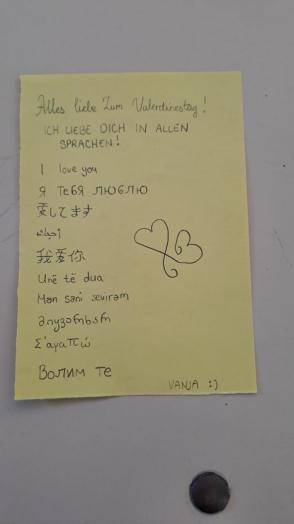 Alles liebe Zum Valentinestag!
ICH LIEBE DICH IN ALLEN
SPRACHEN!
I love you
Я Тебя люблю
愛してます
أحبك
我爱你
Unë të dua
Mən səni sevirəm
Σ'αγαπώ
Волим те
VANJA :)